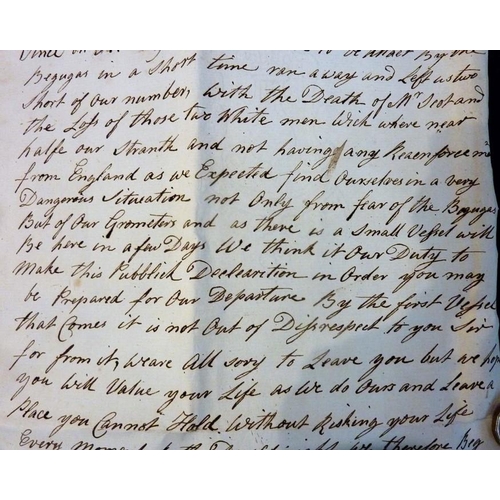 Begugas in a Short time ran away and Left us two
Short of Our number, with the Death of Mr Scot and
the Loss of those two White men Wich where near
halfe our Stranth and not having any Reaenforcem
from England as we Expected find Ourselves in a very
Dangerous Situation not Only from fear of the Begugas
But of Our Grometers and as there is a Small Vessel will
Be here in a few Days We think it Our Duty to
Make this Pubblick Doclearition in Order you may
be Prepared for Our Departure By the first Vessel
that Comes it is not Out of Disrespect to you Sir
for from it, we are All sory to Leave you but we hop
you Will Value your Life as We do Ours and Leave a
Place you Cannot Hold Without Risking your Life
Every we therefore Beg